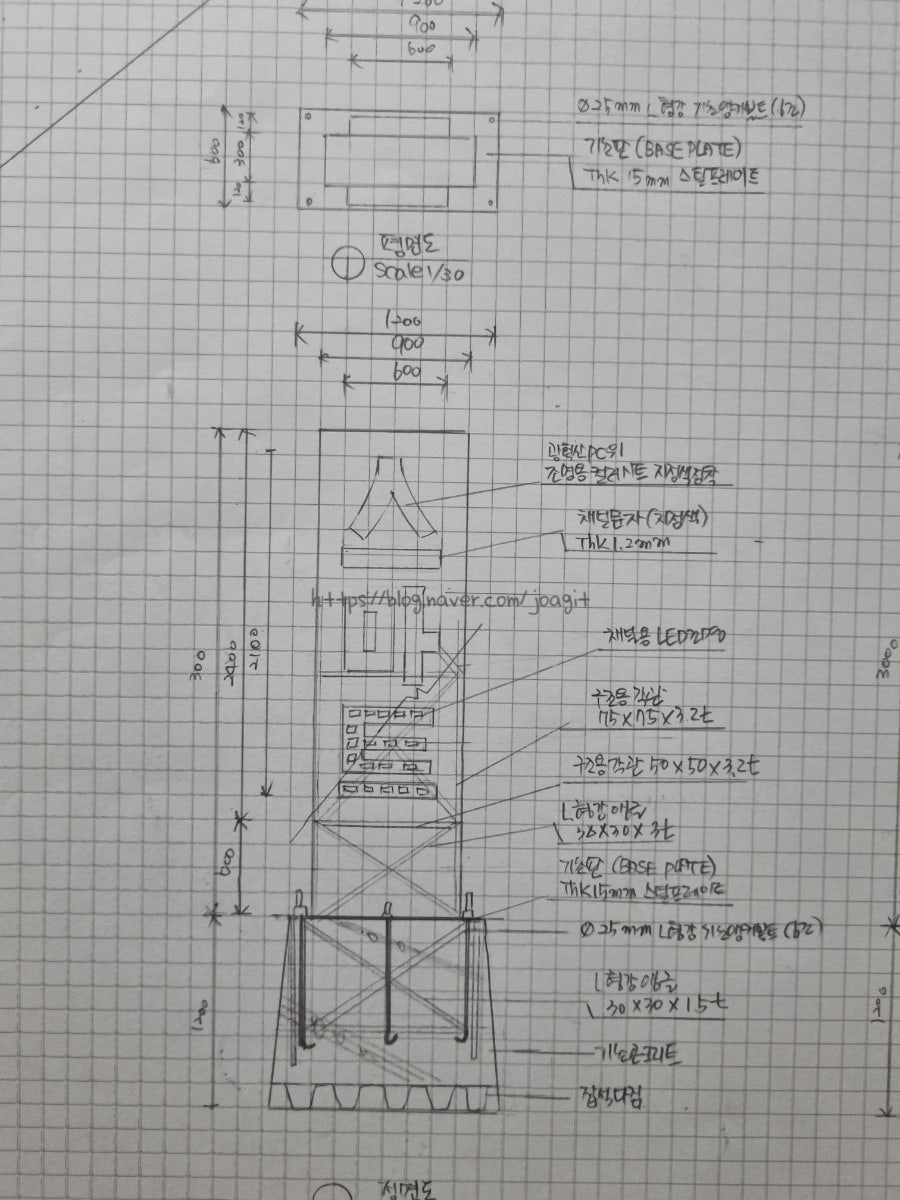 900
600
Ø25mm L형강 기초앙카볼트(6건)
600
150
300
150
기초판 (BASE PLATE)
Thk 15mm 스틸프레이트
평면도
Scale 1/30
1200
900
600
광확산PC위
조명용컬러시트 지정색접착
채널문자(지정색)
Thk1.2mm
https://blog.naver.com/joagit
채널용 LED
300
2100
3000
구조용 각관
75×75×3.2t
구조용각관 50×50×3.2t
L형강 앵글
30×30×3t
600
기초판 (BASE PLATE)
Thk15mm 스틸프레이트
Ø25mm L형강 기초앙카볼트(6건)
L형강 앵글
30×30×1.5t
1200
1200
기초콘크리트
잡석다짐
정면도